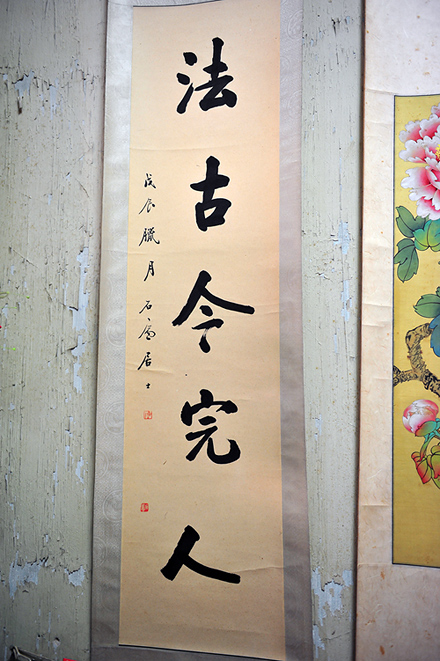 法古今完人
戊辰臘月 石居士